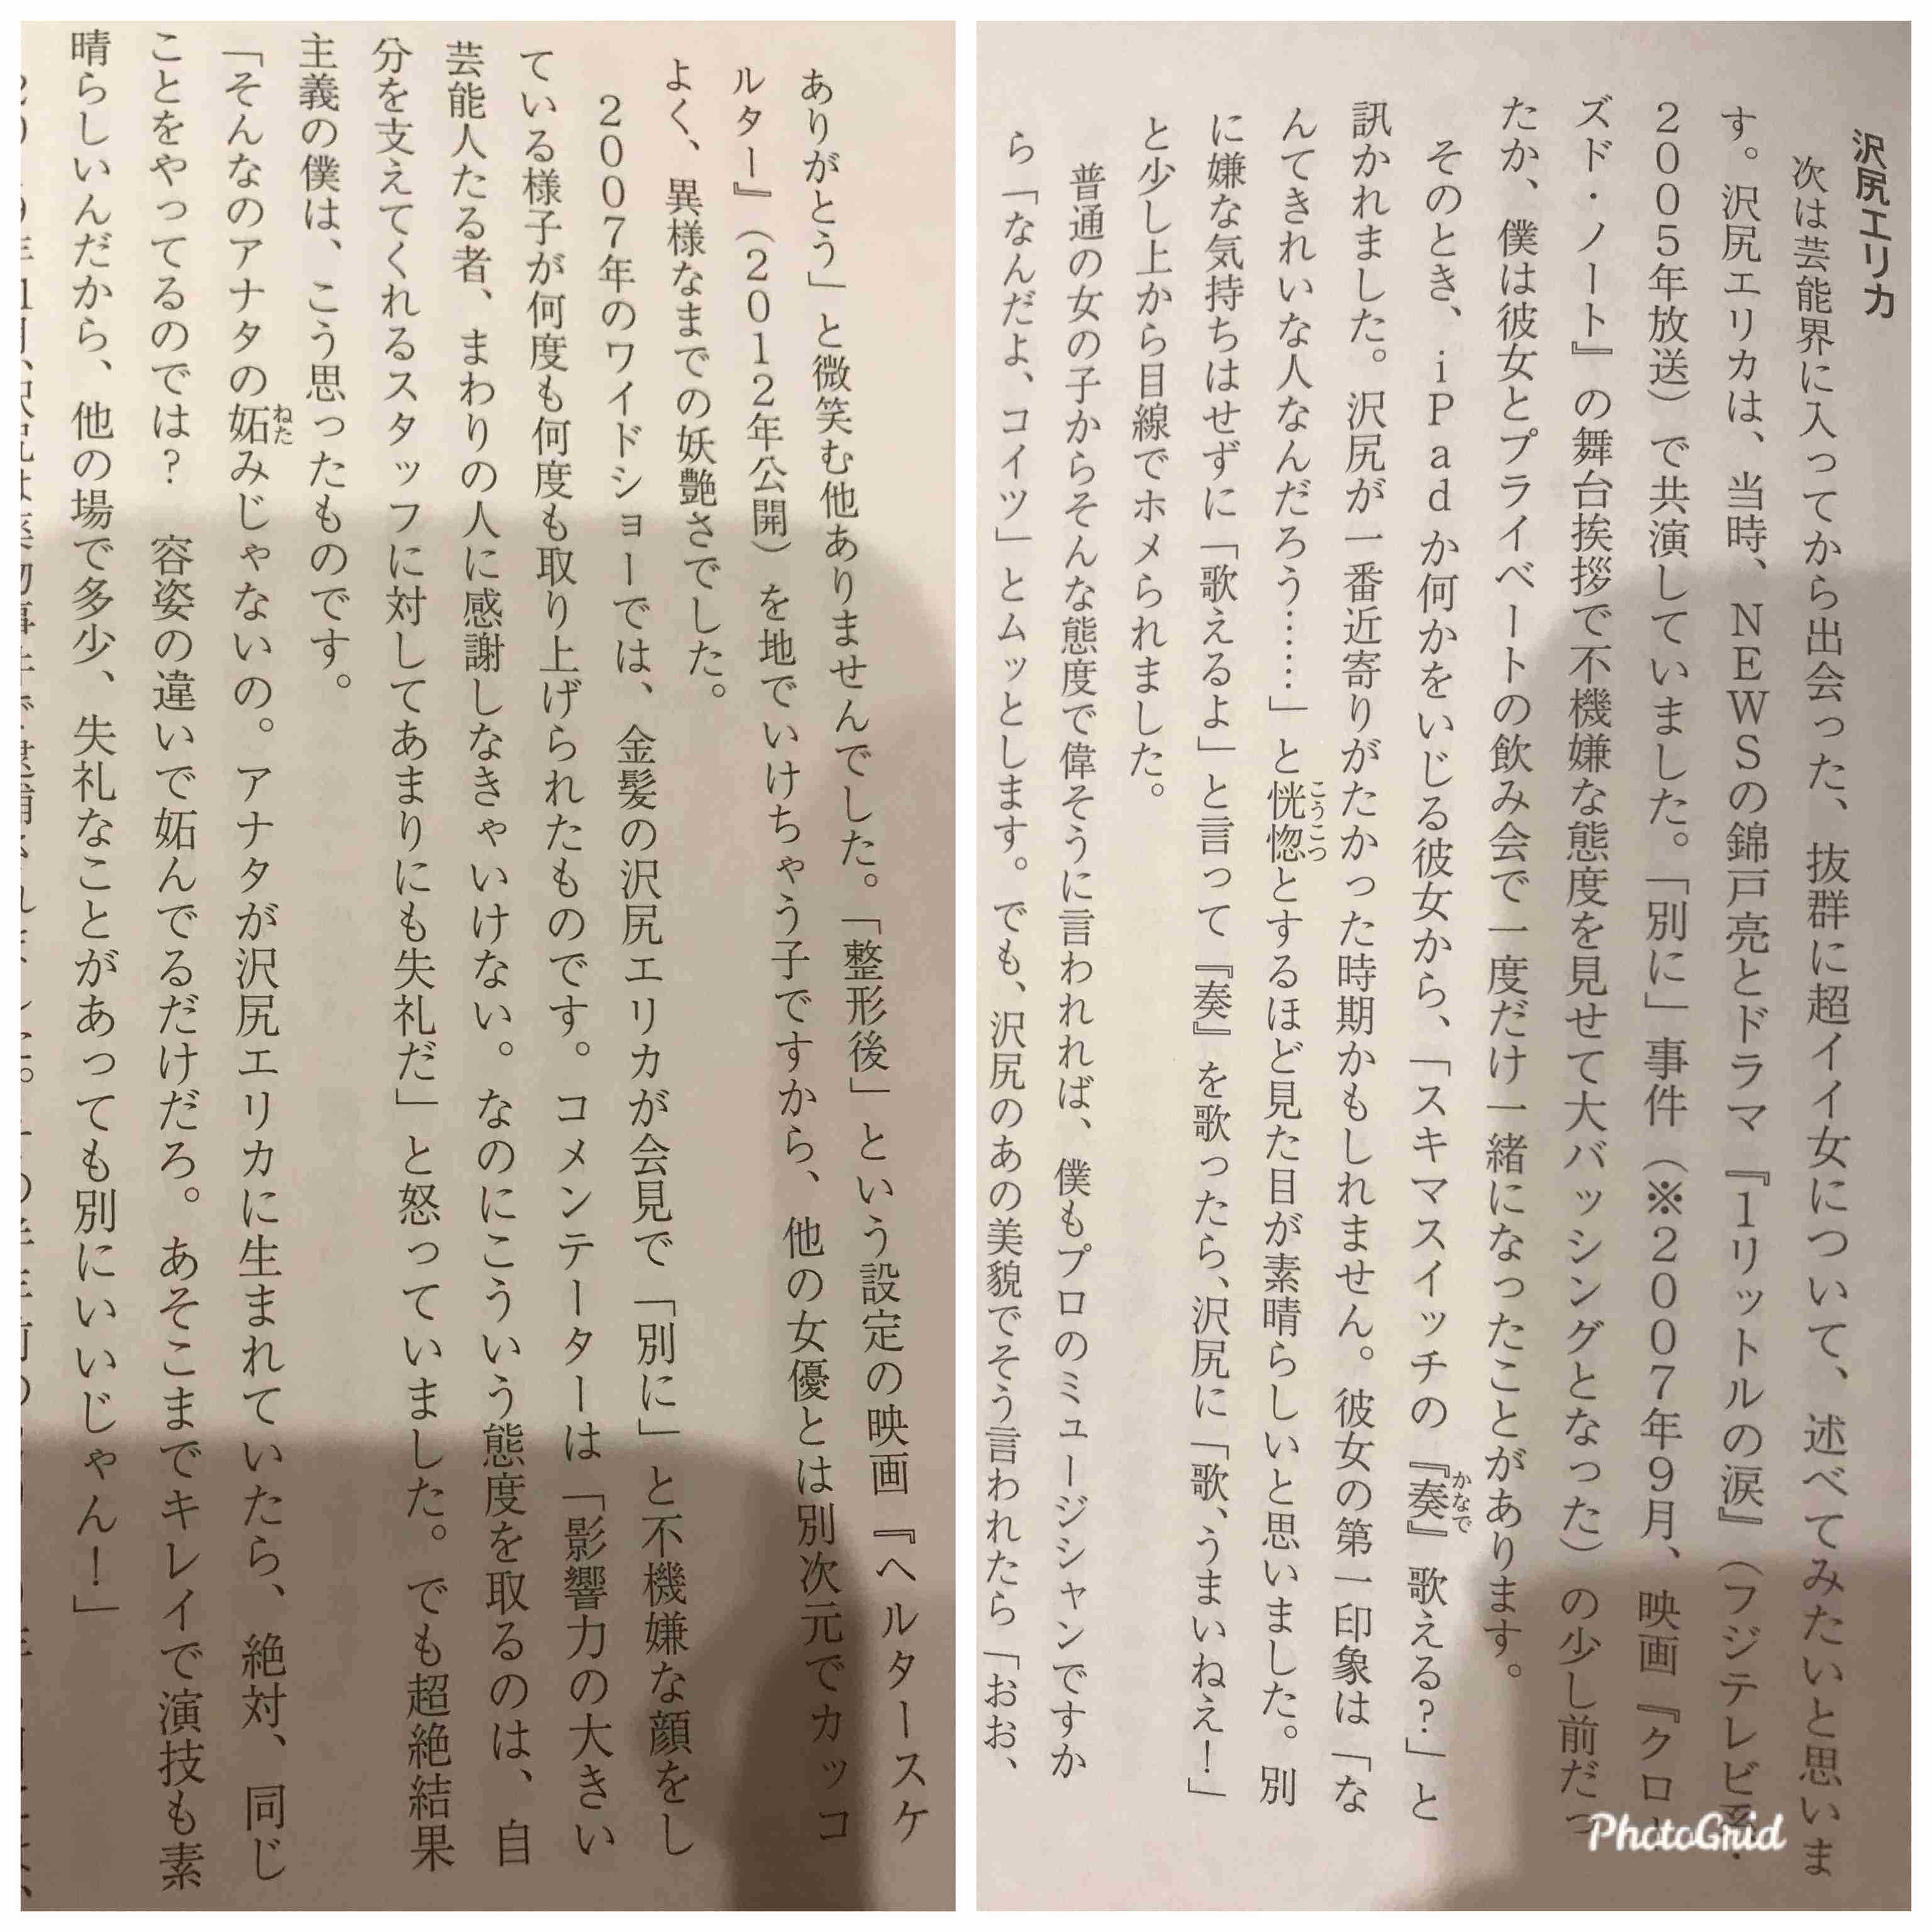 沢尻エリカ
次は芸能界に入ってから出会った、抜群に超イイ女について、述べてみたいと思いま
す。沢尻エリカは、当時、NEWSの錦戸亮とドラマ『1リットルの涙』(フジテレビ系・
2005年放送)で共演していました。「別に」事件(※2007年9月、映画『クロー
ズド・ノート』の舞台挨拶で不機嫌な態度を見せて大バッシングとなった)の少し前だっ
たか、僕は彼女とプライベートの飲み会で一度だけ一緒になったことがあります。
そのとき、iPadか何かをいじる彼女から、「スキマスイッチの『奏』歌える?」と
かなで
訊かれました。沢尻が一番近寄りがたかった時期かもしれません。彼女の第一印象は「な
んてきれいな人なんだろう……」と恍惚とするほど見た目が素晴らしいと思いました。別
こうこつ
に嫌な気持ちはせずに「歌えるよ」と言って『奏』を歌ったら、沢尻に「歌、うまいねえ!」
と少し上から目線でホメられました。
普通の女の子からそんな態度で偉そうに言われれば、僕もプロのミュージシャンですか
ら「なんだよ、コイツ」とムッとします。でも、沢尻のあの美貌でそう言われたら「おお、
ありがとう」と微笑む他ありませんでした。「整形後」という設定の映画『ヘルタースケ
ルター』(2012年公開)を地でいけちゃう子ですから、他の女優とは別次元でカッコ
よく、異様なまでの妖艶さでした。
2007年のワイドショーでは、金髪の沢尻エリカが会見で「別に」と不機嫌な顔をし
ている様子が何度も何度も取り上げられたものです。コメンテーターは「影響力の大きい
芸能人たる者、まわりの人に感謝しなきゃいけない。なのにこういう態度を取るのは、自
分を支えてくれるスタッフに対してあまりにも失礼だ」と怒っていました。でも超絶結果
主義の僕は、こう思ったものです。
「そんなのアナタの妬みじゃないの。アナタが沢尻エリカに生まれていたら、絶対、同じ
ねた
ことをやってるのでは? 容姿の違いで妬んでるだけだろ。あそこまでキレイで演技も素
晴らしいんだから、他の場で多少、失礼なことがあっても別にいいじゃん!」
PhotoGrid